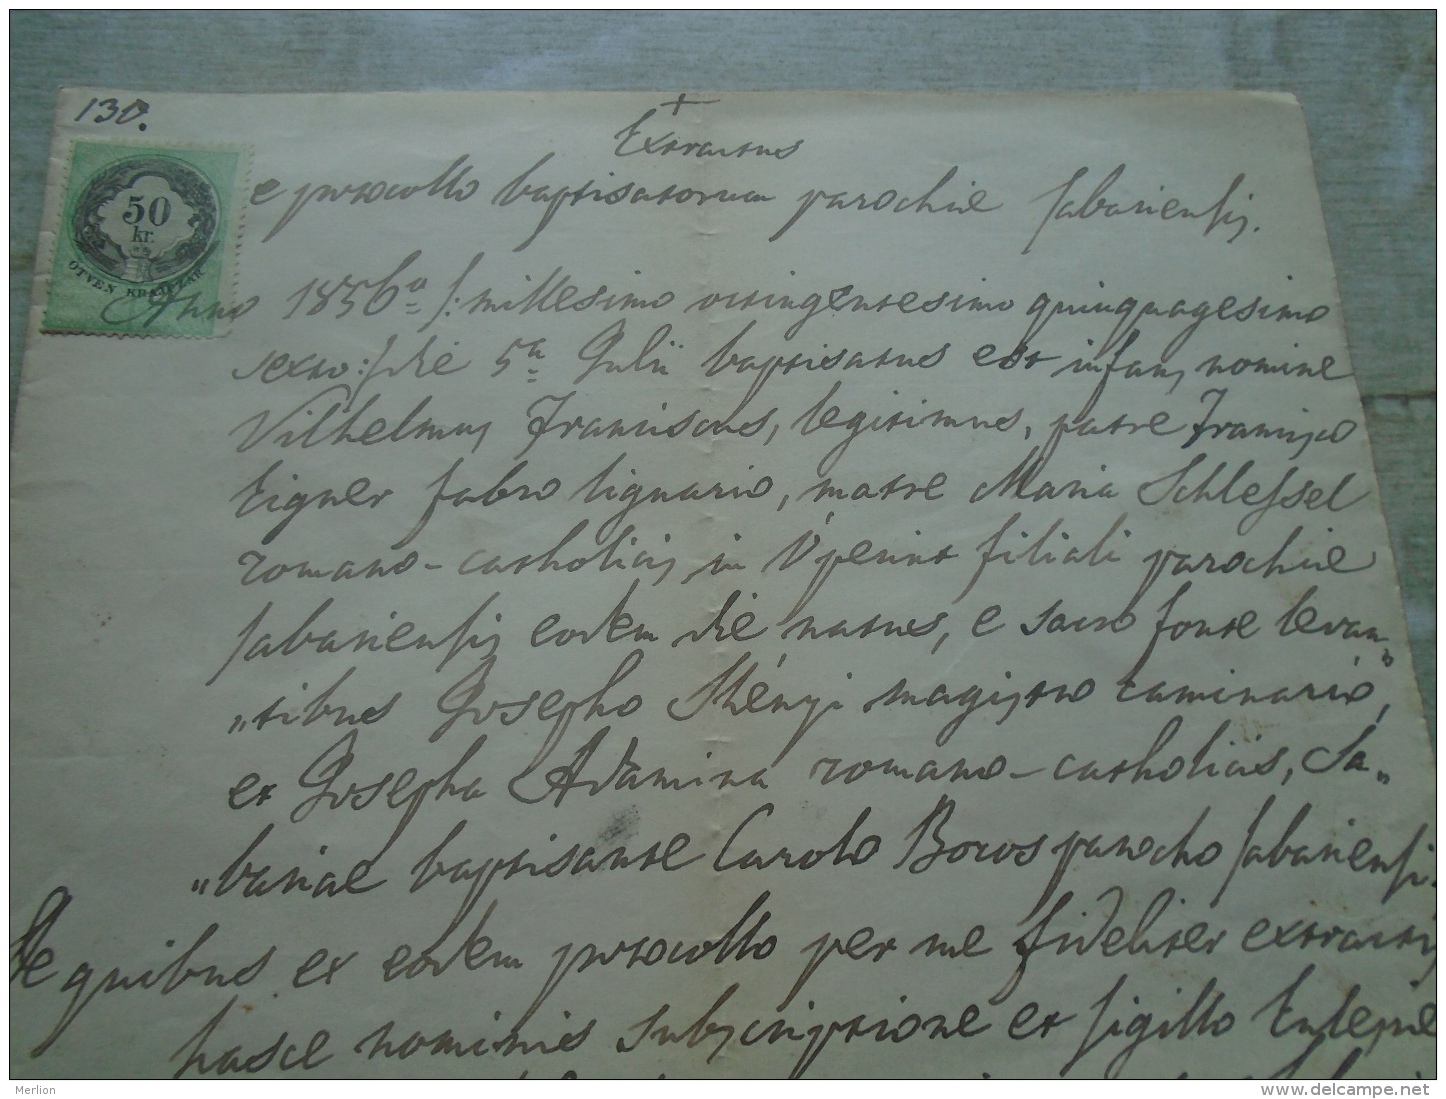 130.
+
Extractus
e protocollo baptisatorum parochiae sabariensis.
50
kr.
ÖTVEN KRAJCZÁR
Anno 1856º /: millesimo octingentesimo quinquagesimo
sexto :/ die 5ª Julii baptisatus est infans, nomine
Vilhelmus Franciscus, legitimus, patre Francisco
Eigner fabro lignario, matre Maria Schlessel
romano-catholicis in Óperint filiali parochiae
sabariensis eodem die natus, e sacro fonte levan„
„tibus Josepho Sténgi magistro caminario,
et Josepha Adamina romano-catholicis, Sa„
„bariae baptisante Carolo Bocos parocho sabariensi.
De quibus ex eodem protocollo per me fideliter extractis
hasce nominis subscriptione et sigillo Ecclesiae
Merlion
www.delcampe.net